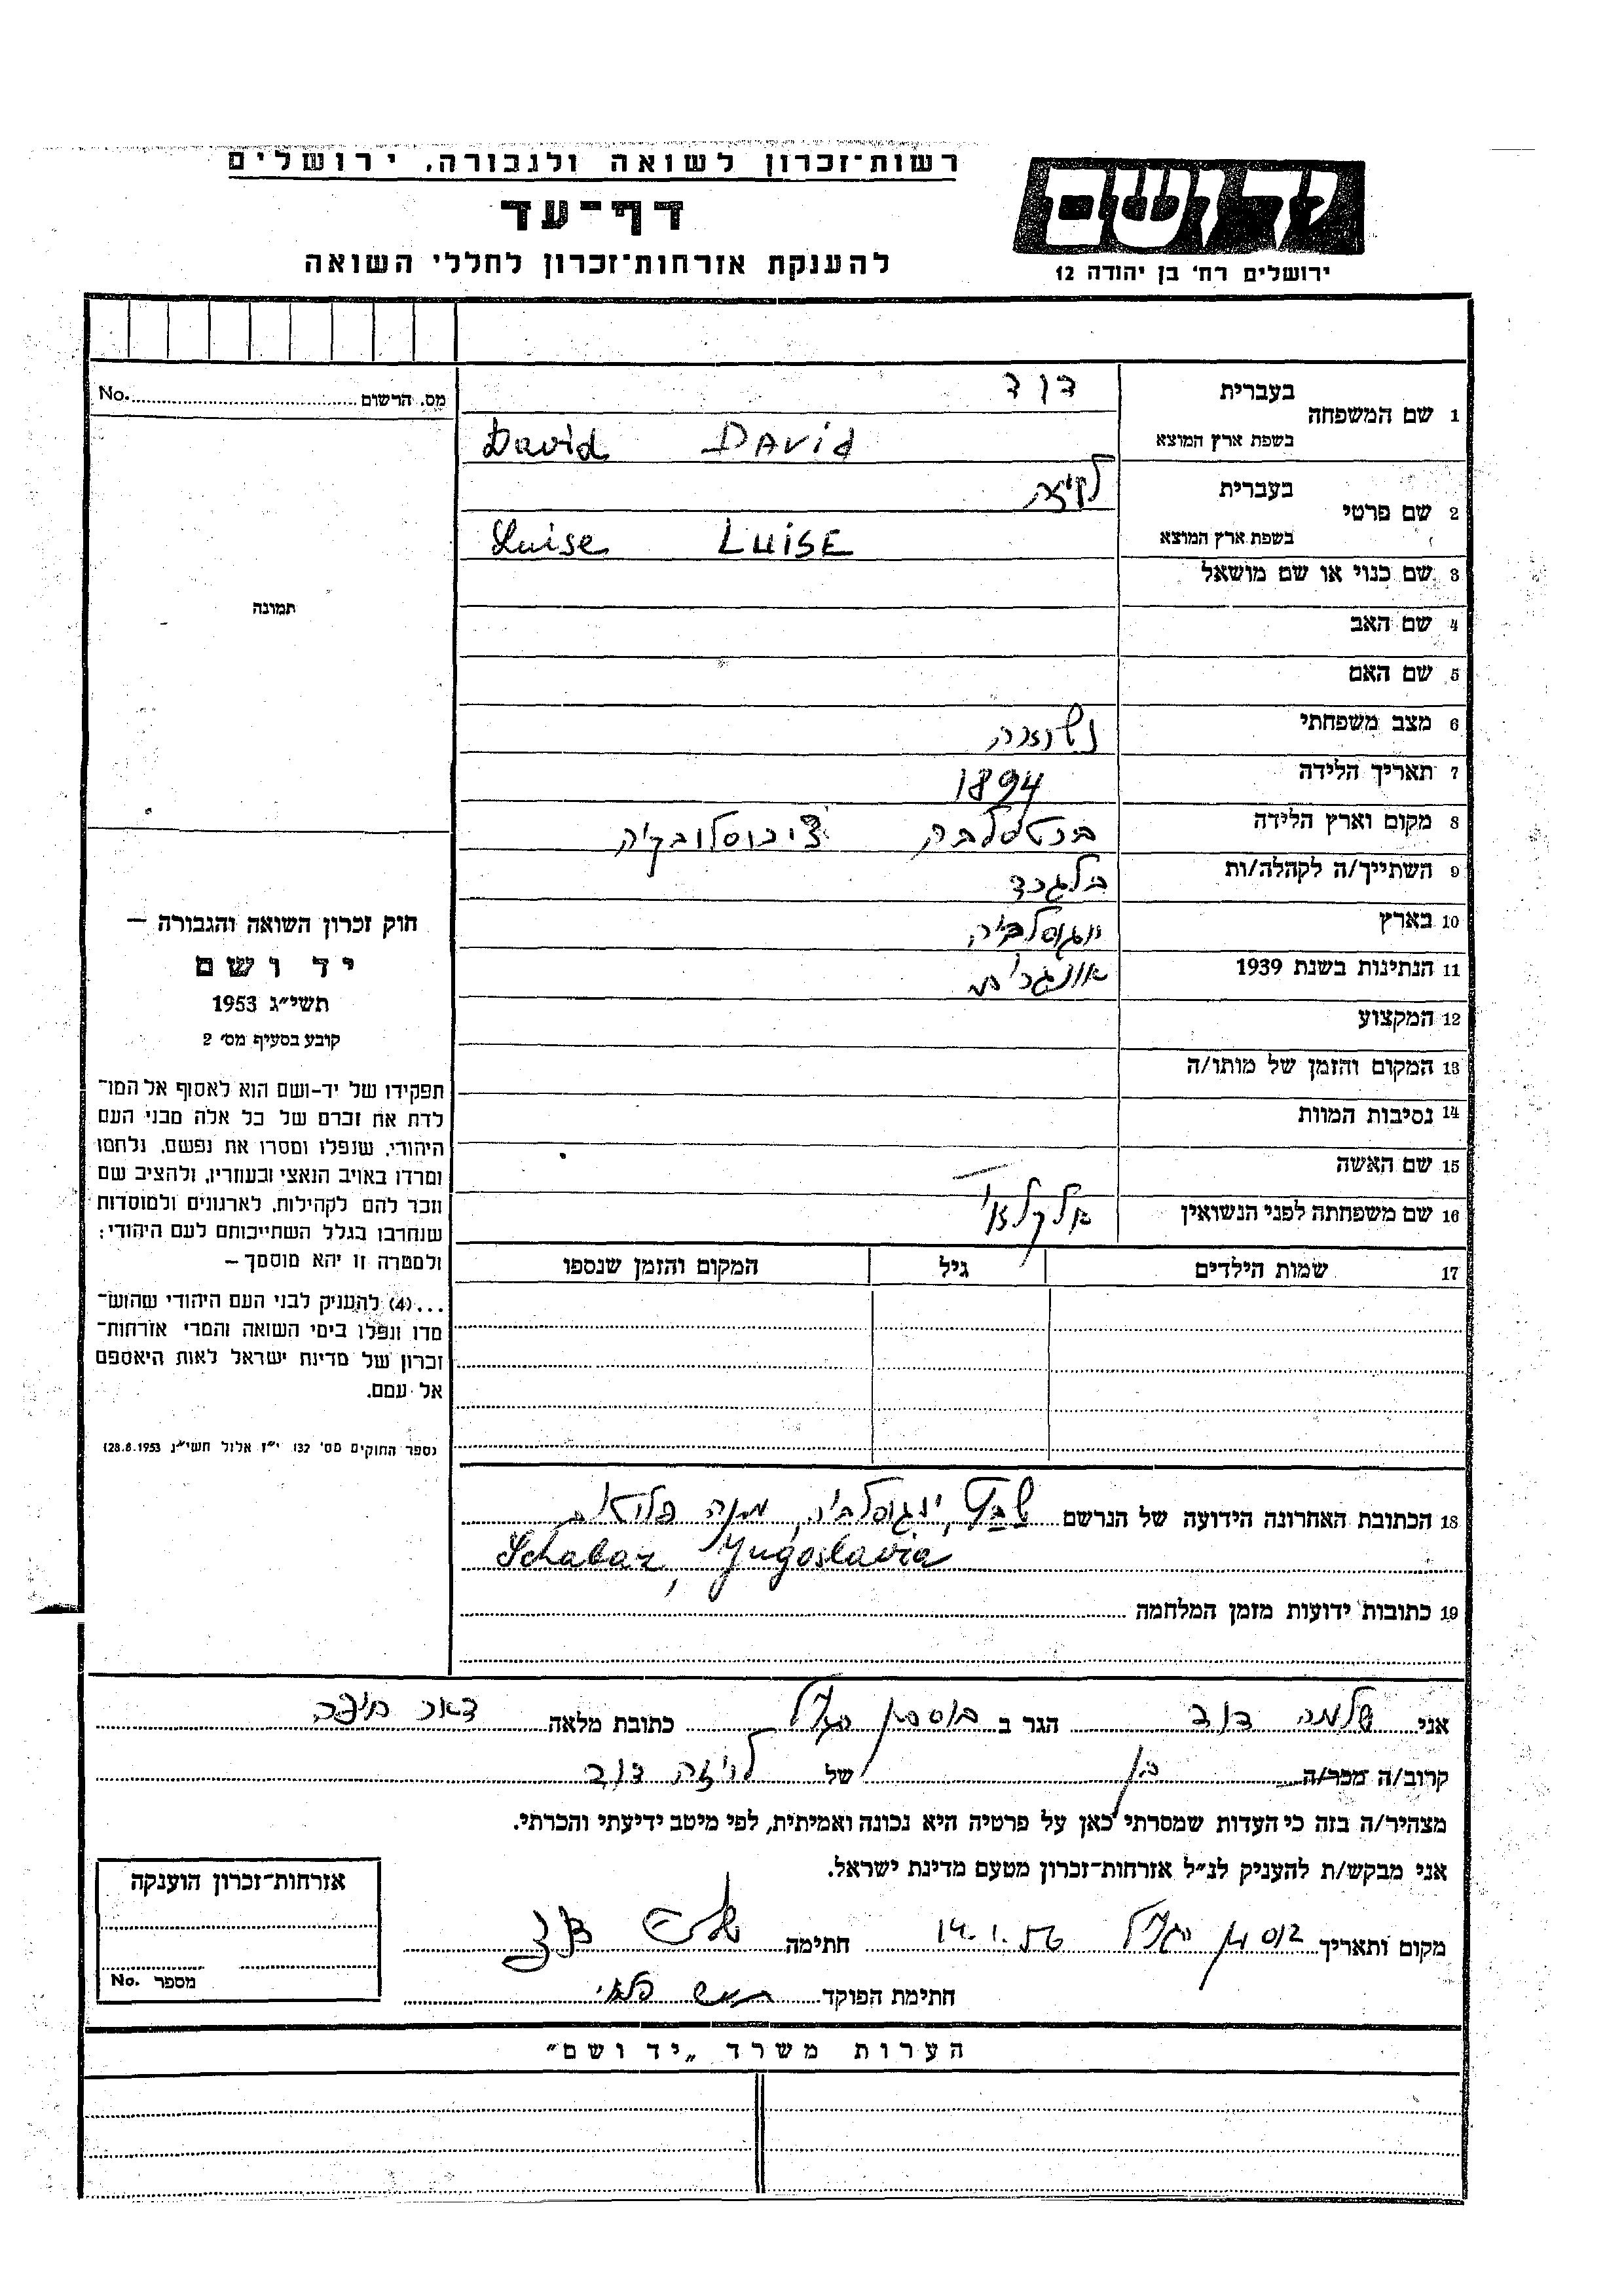 רשות־זכרון לשואה ולגבורה, ירושלים
דף־עד
להענקת אזרחות־זכרון לחללי השואה
יד ושם
ירושלים רח' בן יהודה 12
מס. הרשום No.
1 שם המשפחה
בעברית דוד
בשפת ארץ המוצא DAViD David
2 שם פרטי
בעברית לויזה
בשפת ארץ המוצא LUiSE Luise
3 שם כנוי או שם מושאל
4 שם האב
5 שם האם
6 מצב משפחתי נשואה
7 תאריך הלידה 1894
8 מקום וארץ הלידה ציכוסלובקיה
9 השתייך/ה לקהלה/ות בלגרד
10 בארץ יוגוסלביה
11 הנתינות בשנת 1939
12 המקצוע
13 המקום והזמן של מותו/ה
14 נסיבות המוות
15 שם האשה
16 שם משפחתה לפני הנשואין
17 שמות הילדים גיל המקום והזמן שנספו
18 הכתובת האחרונה הידועה של הנרשם יוגוסלביה,
Schabaz, Yugoslavia
19 כתובות ידועות מזמן המלחמה
תמונה
חוק זכרון השואה והגבורה –
יד ושם
תשי"ג 1953
קובע בסעיף מס' 2
תפקידו של יד-ושם הוא לאסוף אל המו־
לדת את זכרם של כל אלה מבני העם
היהודי, שנפלו ומסרו את נפשם, נלחמו
ומרדו באויב הנאצי ובעוזריו, ולהציב שם
וזכר להם לקהילות, לארגונים ולמוסדות
שנחרבו בגלל השתייכותם לעם היהודי;
ולמטרה זו יהא מוסמך –
...(4) להעניק לבני העם היהודי שהוש־
מדו ונפלו בימי השואה והמרי אזרחות־
זכרון של מדינת ישראל לאות היאספם
אל עמם.
(ספר החוקים מס' 132 י"ז אלול תשי"ג 28.8.1953)
אני שלמה דוד הגר ב בוסתן הגליל כתובת מלאה דאר חיפה
קרוב/ה מכר/ה בן של לויזה דוד
מצהיר/ה בזה כי העדות שמסרתי כאן על פרטיה היא נכונה ואמיתית, לפי מיטב ידיעתי והכרתי.
אני מבקש/ת להעניק לנ"ל אזרחות־זכרון מטעם מדינת ישראל.
מקום ותאריך בוסתן הגליל 14.1.56 חתימה
חתימת הפוקד
אזרחות־זכרון הוענקה
מספר No.
הערות משרד „יד ושם"